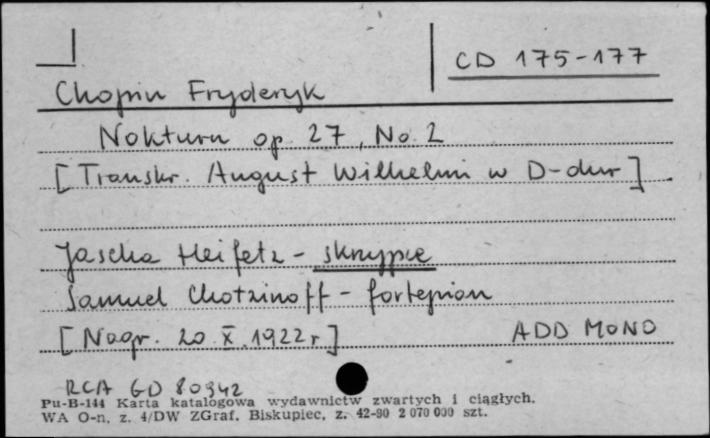 CD 175-177
Chopin Fryderyk
Nokturn op. 27, No. 2
[Transkr. August Wilhelmi w D-dur]
Jascha Heifetz - skrzypce
Samuel Chotzinoff - fortepian
[Nagr. 20 X 1922 r]
ADD MONO
RCA GD 80942
Pu-B-144 Karta katalogowa wydawnictw zwartych i ciągłych.
WA O-n, z. 4/DW ZGraf. Biskupiec, z. 42-90 2 070 000 szt.